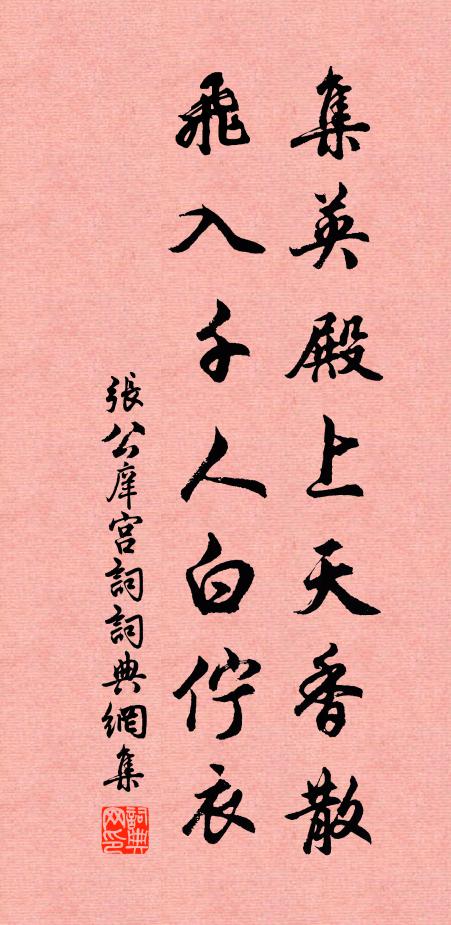 集英殿上天香散
飛入千人白佇衣
張公庠宮詞詞典網集
詞典网印